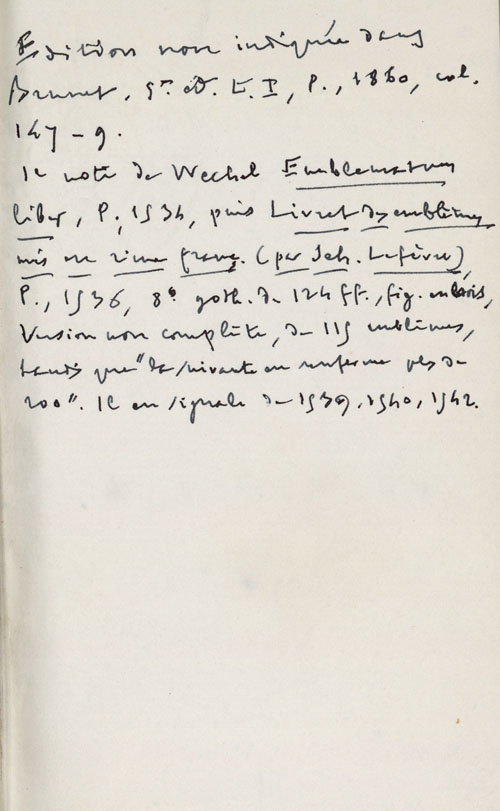 Edition non indiquée dans
Brunet, 5e éd. t. I, P., 1860, col.
147-9.
Il note de Wechel Emblematum
liber, P., 1534, puis Livret des emblèmes
mis en rime franç. (par Jeh. Lefèvre),
P., 1536, 8° goth. de 124 ff., fig. en bois,
Version non complète, de 115 emblèmes,
tandis que "la suivante en renferme plus de
200". Il en signale de 1539, 1540, 1542.